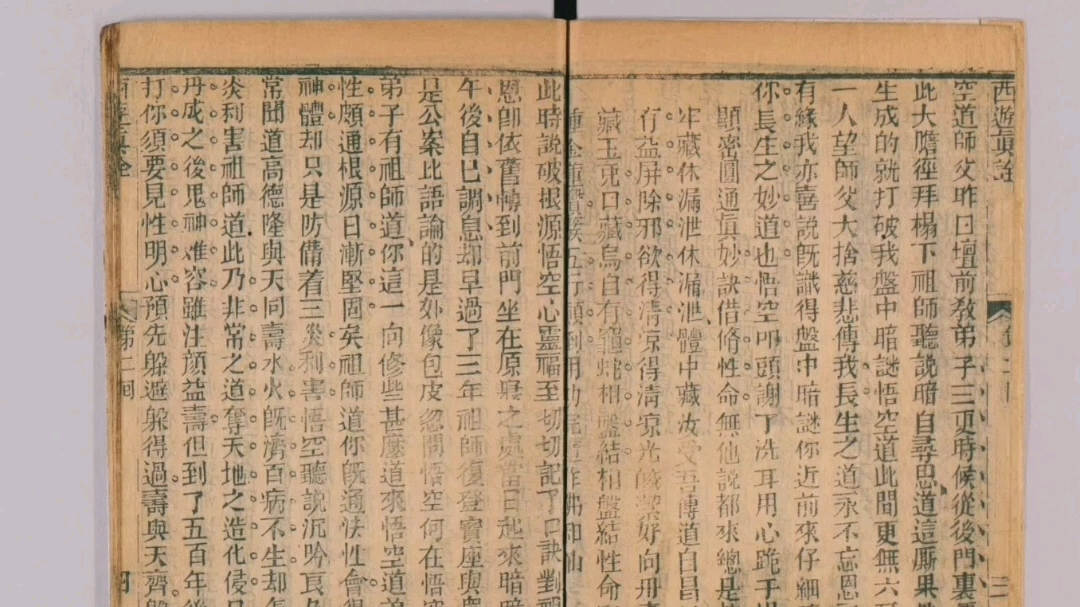 西遊眞詮 第二回 三
空道師父昨日壇前教弟子三更時候從後門裏
此大膽徑拜榻下祖師聽說暗自尋思道這厮果
生成的就打破我盤中暗謎悟空道此間更無六
一人望師父大捨慈悲傳我長生之道永不忘恩
有緣我亦喜說既識得盤中暗謎你近前來仔細
你長生之妙道也悟空叩頭謝了洗耳用心跪于
顯密圓通眞妙訣借脩性命無他說都來總是
牢藏休漏泄休漏泄體中藏汝受吾傳道自昌
有益屏除邪欲得清凉得清凉光皎潔好向丹
藏玉兔日藏烏自有龜蛇相盤結相盤結性命
種金蓮攢簇五行顛倒用功完作佛和仙
此時說破根源悟空心靈福至切切記了口訣對祖
恩卽依舊轉到前門坐在原寢之處當日起來暗暗
午後自己調息却早過了三年祖師復登寶座與
是公案比語論的是外像包皮忽問悟空何在悟
弟子有祖師道你這一向修些甚麼道來悟空道
性頗通根源日漸堅固矣祖師道你既通法性會得
神體却只是防備着三災利害悟空聽說沉吟良久
常聞道高德隆與天同壽水火既濟百病不生却
災利害祖師道此乃非常之道奪天地之造化侵
丹成之後鬼神難容雖注顏益壽但到了五百年後
打你須要見性明心預先躲避躲得過壽與天齊躲
西遊眞詮 第二回 四